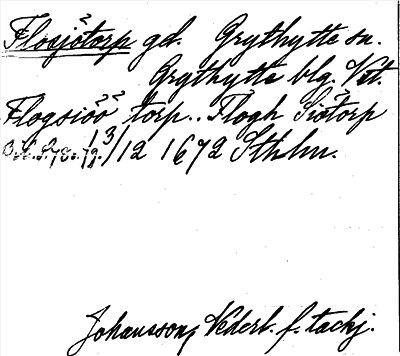 Flosjötorp gd. Grythytte sn.
Grythytte blg. Vst.
Flogsiöö torp.. Flogh Siötorp
13/12 1672 Sthlm.
Johansson, Nederl. f. tackj.